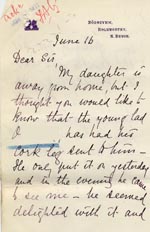 HOLSWORTHY,
N. DEVON.
June 16
Dear Sir
My daughter is
away from home, but I
thought you would like to
know that the young lad
I has had his
cork leg sent to him —
He only put it on yesterday
and in the evening he came
to see me — he seemed
delighted with it and